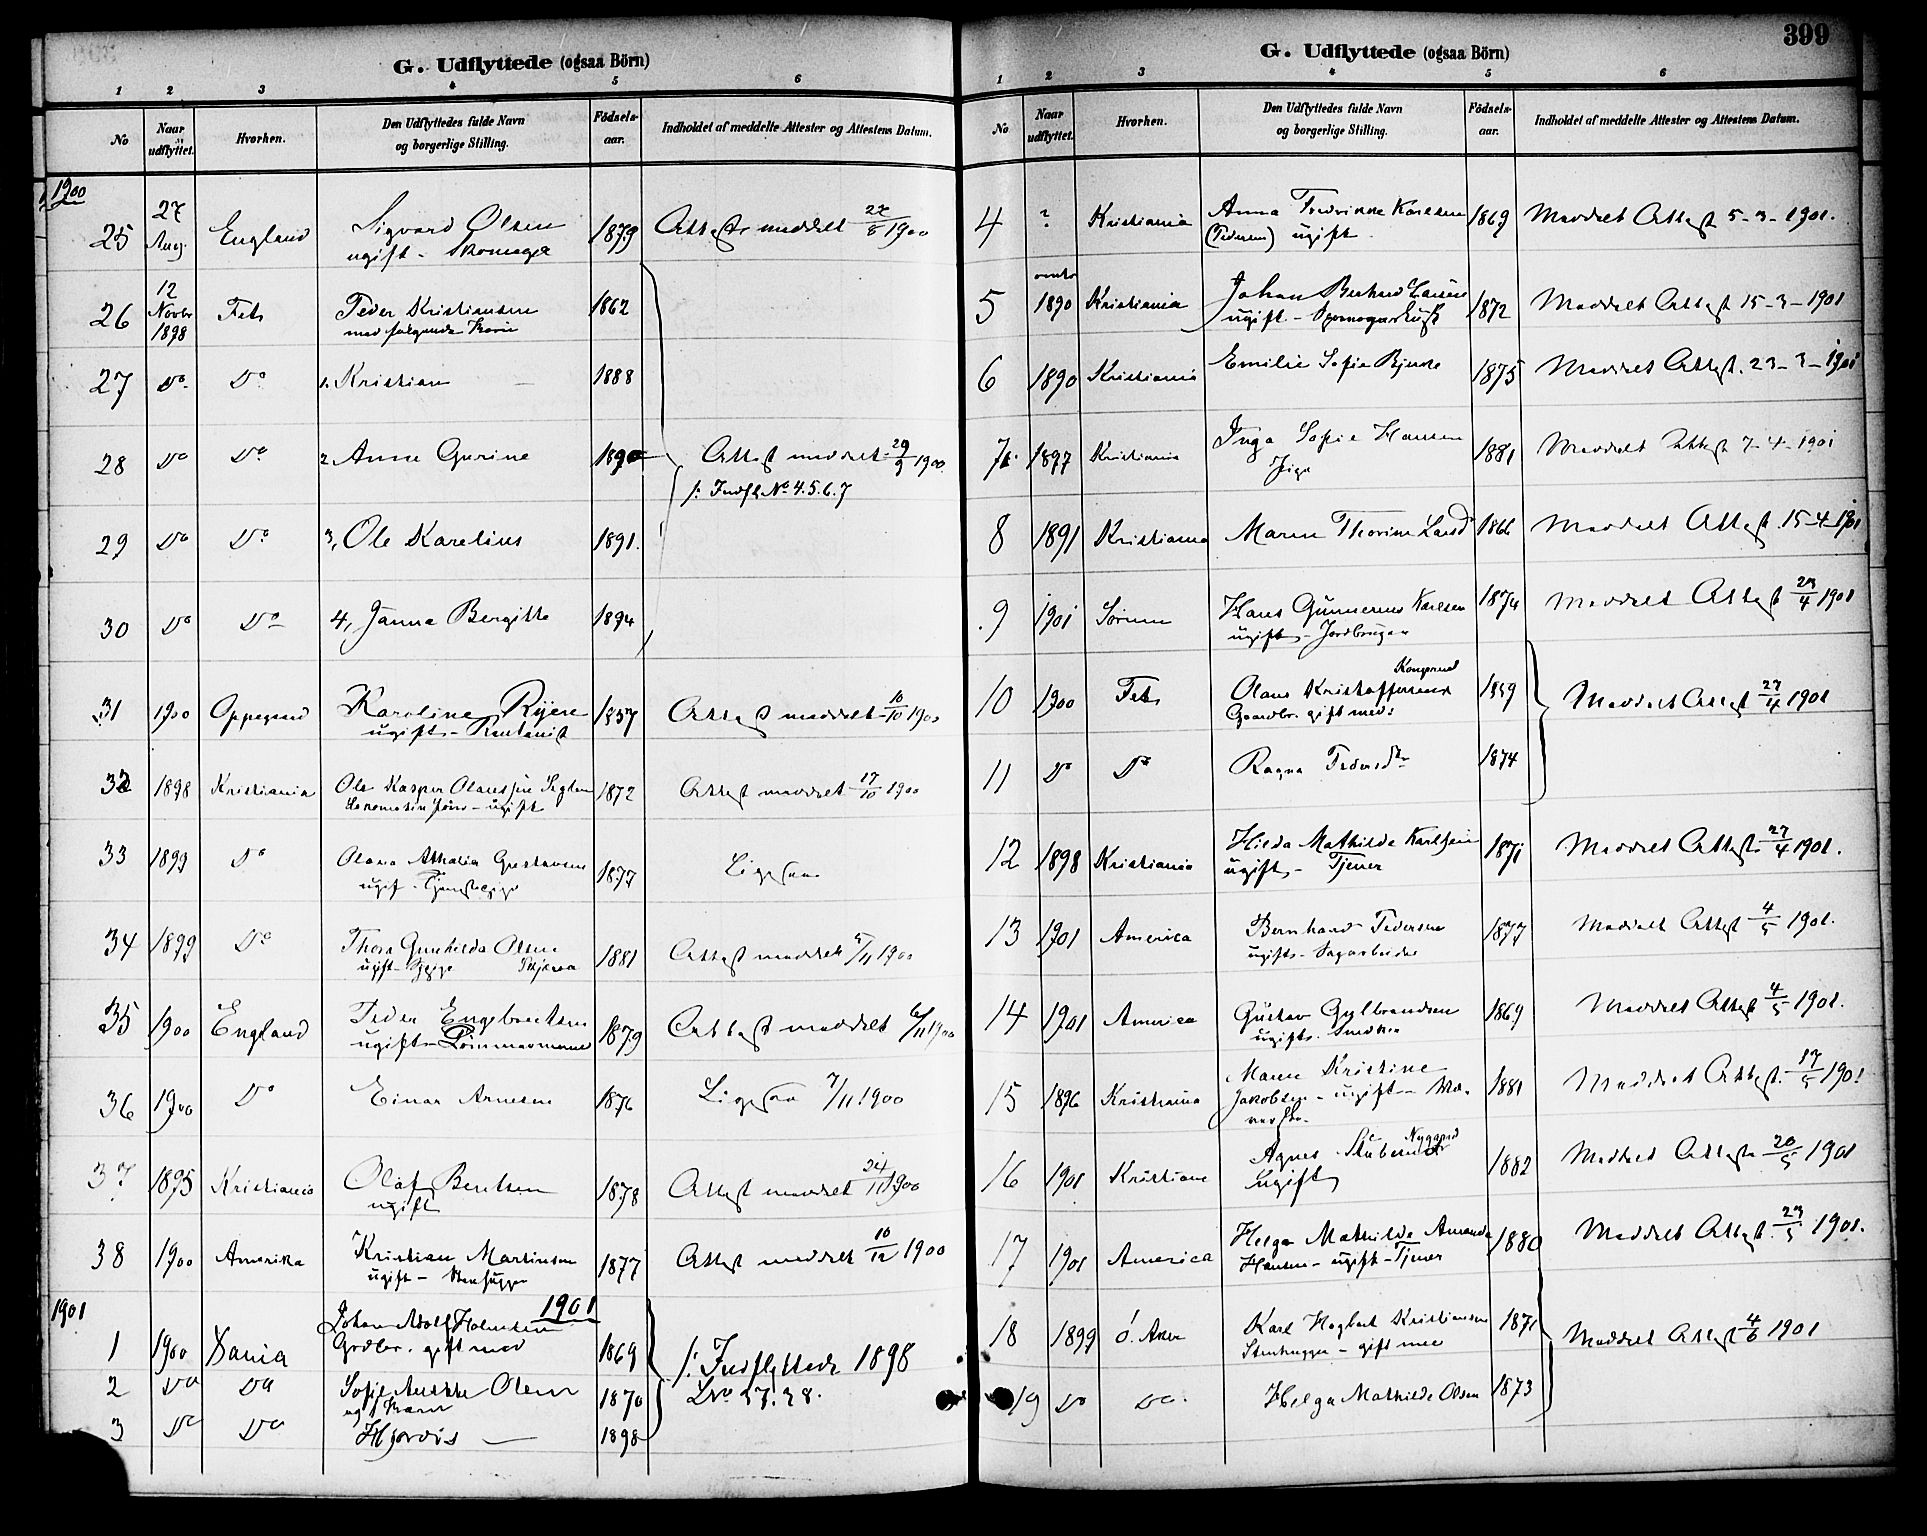 399
G. Udflyttede (ogsaa Börn)
1 2 3 4 5 6
No
Naar udflyttet.
Hvorhen.
Den Udflyttedes fulde Navn og borgerlige Stilling.
Födsels-aar.
Indholdet af meddelte Attester og Attestens Datum.
1900
25 27 Aug. England Sigvard Olsen 1879 Attest meddelt 27/8 1900
ugift - Skomager
26 12 Novbr 1898 Fet Peder Kristiansen 1862
med følgende Børn
27 Do Do 1. Kristian — 1888
28 Do Do 2, Anne Gurine 1890 Attest meddelt 29/9 1900
/: Indfl. No 4.5.6.7
29 Do Do 3, Ole Karelius 1891.
30 Do Do 4, Janna Bergitte 1894
31 1900 Oppegaard Karoline 1857 Attest meddelt 10/10 1900
ugift
32 1898 Kristiania Ole Kasper 1872 Attest meddelt 17/10 1900
ugift
33 1899 Do Olava Athalia Gustavsen 1877 Ligesaa
ugift - Tjenestepige
34 1899 Do Thora Gunhilda Olsen 1881 Attest meddelt 5/11 1900
ugift - Pige
35 1900 England Peder Engebretsen 1879 Attest meddelt 6/11 1900
ugift - Tømmermand
36 1900 Do Einar Arnesen 1876 Ligesaa 7/11 1900
37 1895 Kristiania Olaf Berntsen 1878 Attest meddelt 24/11 1900
ugift
38 1900 Amerika Kristian Martinsen 1877 Attest meddelt 10/12 1900
ugift - Stenhugger
1901
1901
1 1900 Johan Adolf Holmsen 1869 /: Indflyttede 1898
Grdbr. gift med
2 Do Do Sofie Olsen 1870 LNo 27.28.
og Barn
3 Do Do Hjørdis — 1898
G. Udflyttede (ogsaa Börn)
1 2 3 4 5 6
No
Naar udflyttet.
Hvorhen.
Den Udflyttedes fulde Navn og borgerlige Stilling.
Födsels-aar.
Indholdet af meddelte Attester og Attestens Datum.
4 ? Kristiania Anna Fredrikke Karlsen 1869 Meddelt Attest 5-3-1901.
(Pedersen) ugift
5 omtr 1890 Kristiania Johan Bernhard Larsen 1872 Meddelt Attest 15-3-1901
ugift -
6 1890 Kristiania Emilie Sofie Bjerke 1875 Meddelt Attest. 23-3-1901
7 1897 Kristiania Inga Sofie Hansen 1881 Meddelt Attest 7-4-1901
Pige
8 1891 Kristiania Maren Thorine Larsd 1866 Meddelt Attest 15-4-1901
9 1901 Sørum Hans Gunnerius Karlsen 1874 Meddelt Attest 23/4 1901
ugift - Jordbruger
10 1900 Fet Olaus Kristoffersen 1859 Meddelt Attest 27/4 1901
Gaardbr. gift med:
11 Do Do Ragna Pedersdtr 1874
12 1898 Kristiania Hilda Mathilde Karlsen 1871 Meddelt Attest 27/4 1901.
ugift - Tjener
13 1901 America Bernhard Pedersen 1877 Meddelt Attest 4/5 1901.
ugift - Sagarbeider
14 1901 America Gustav Gulbrandsen 1869 Meddelt Attest 4/5 1901.
ugift.
15 1896 Kristiania Maren Kristine 1881 Meddelt Attest 17/5 1901
Jakobsen - ugift -
16 1901 Kristiania Agnes Nygaard 1882 Meddelt Attest 20/5 1901
ugift
17 1901 America Helga Mathilde Amanda 1880 Meddelt Attest 23/5 1901.
Hansen - ugift - Tjener
18 1899 Ø. Aker Karl Hagbart Kristiansen 1871 Meddelt Attest 4/6 1901
Stenhugger - gift med
19 Do Do. Helga Mathilde Olsen 1873